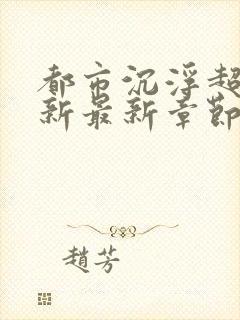 都市沉浮超
新最新章節
趙芳